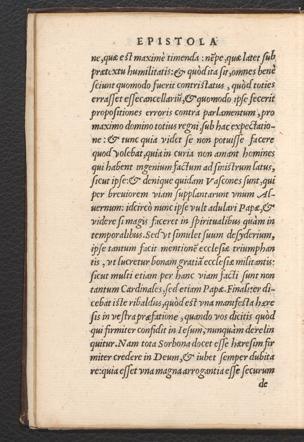 EPISTOLA
ne, quæ est maximè timenda: nẽpe, quæ latet sub
prætextu humilitatis: & quòd ita sit, omnes benè
sciunt quomodo fuerit contristatus, quòd toties
errasset esse cancellariũ, & quomodo ipse fecerit
propositiones erroris contra parlamentum, pro
maximo domino totius regni, sub hac expectatio-
ne: & tunc quia videt se non potuisse facere
quod volebat, quia in curia non amant homines
qui habent ingenium factum ad sinistrum latus,
sicut ipse: & denique quidam Vascones sunt, qui
per breuiorem viam supplantarunt vnum Al-
uernum: idcircò nunc ipse vult adulari Papæ, &
videre si magis faceret in spiritualibus quàm in
temporalibus. Sed vt simulet suum desyderium,
ipse tantum facit mentionẽ ecclesiæ triumphan
tis, vt lucretur bonam gratiã ecclesiæ militantis:
sicut multi etiam per hanc viam facti sunt non
tantum Cardinales, sed etiam Papæ. Finaliter di-
cebat iste ribaldus, quòd est vna manifesta hære
sis in vestra præfatione, quando vos dicitis quòd
qui firmiter confidit in Iesum, nunquàm derelin
quitur. Nam tota Sorbona docet esse hæresim fir
miter credere in Deum, & iubet semper dubita
re: quia esset vna magna arrogantia esse securum
de